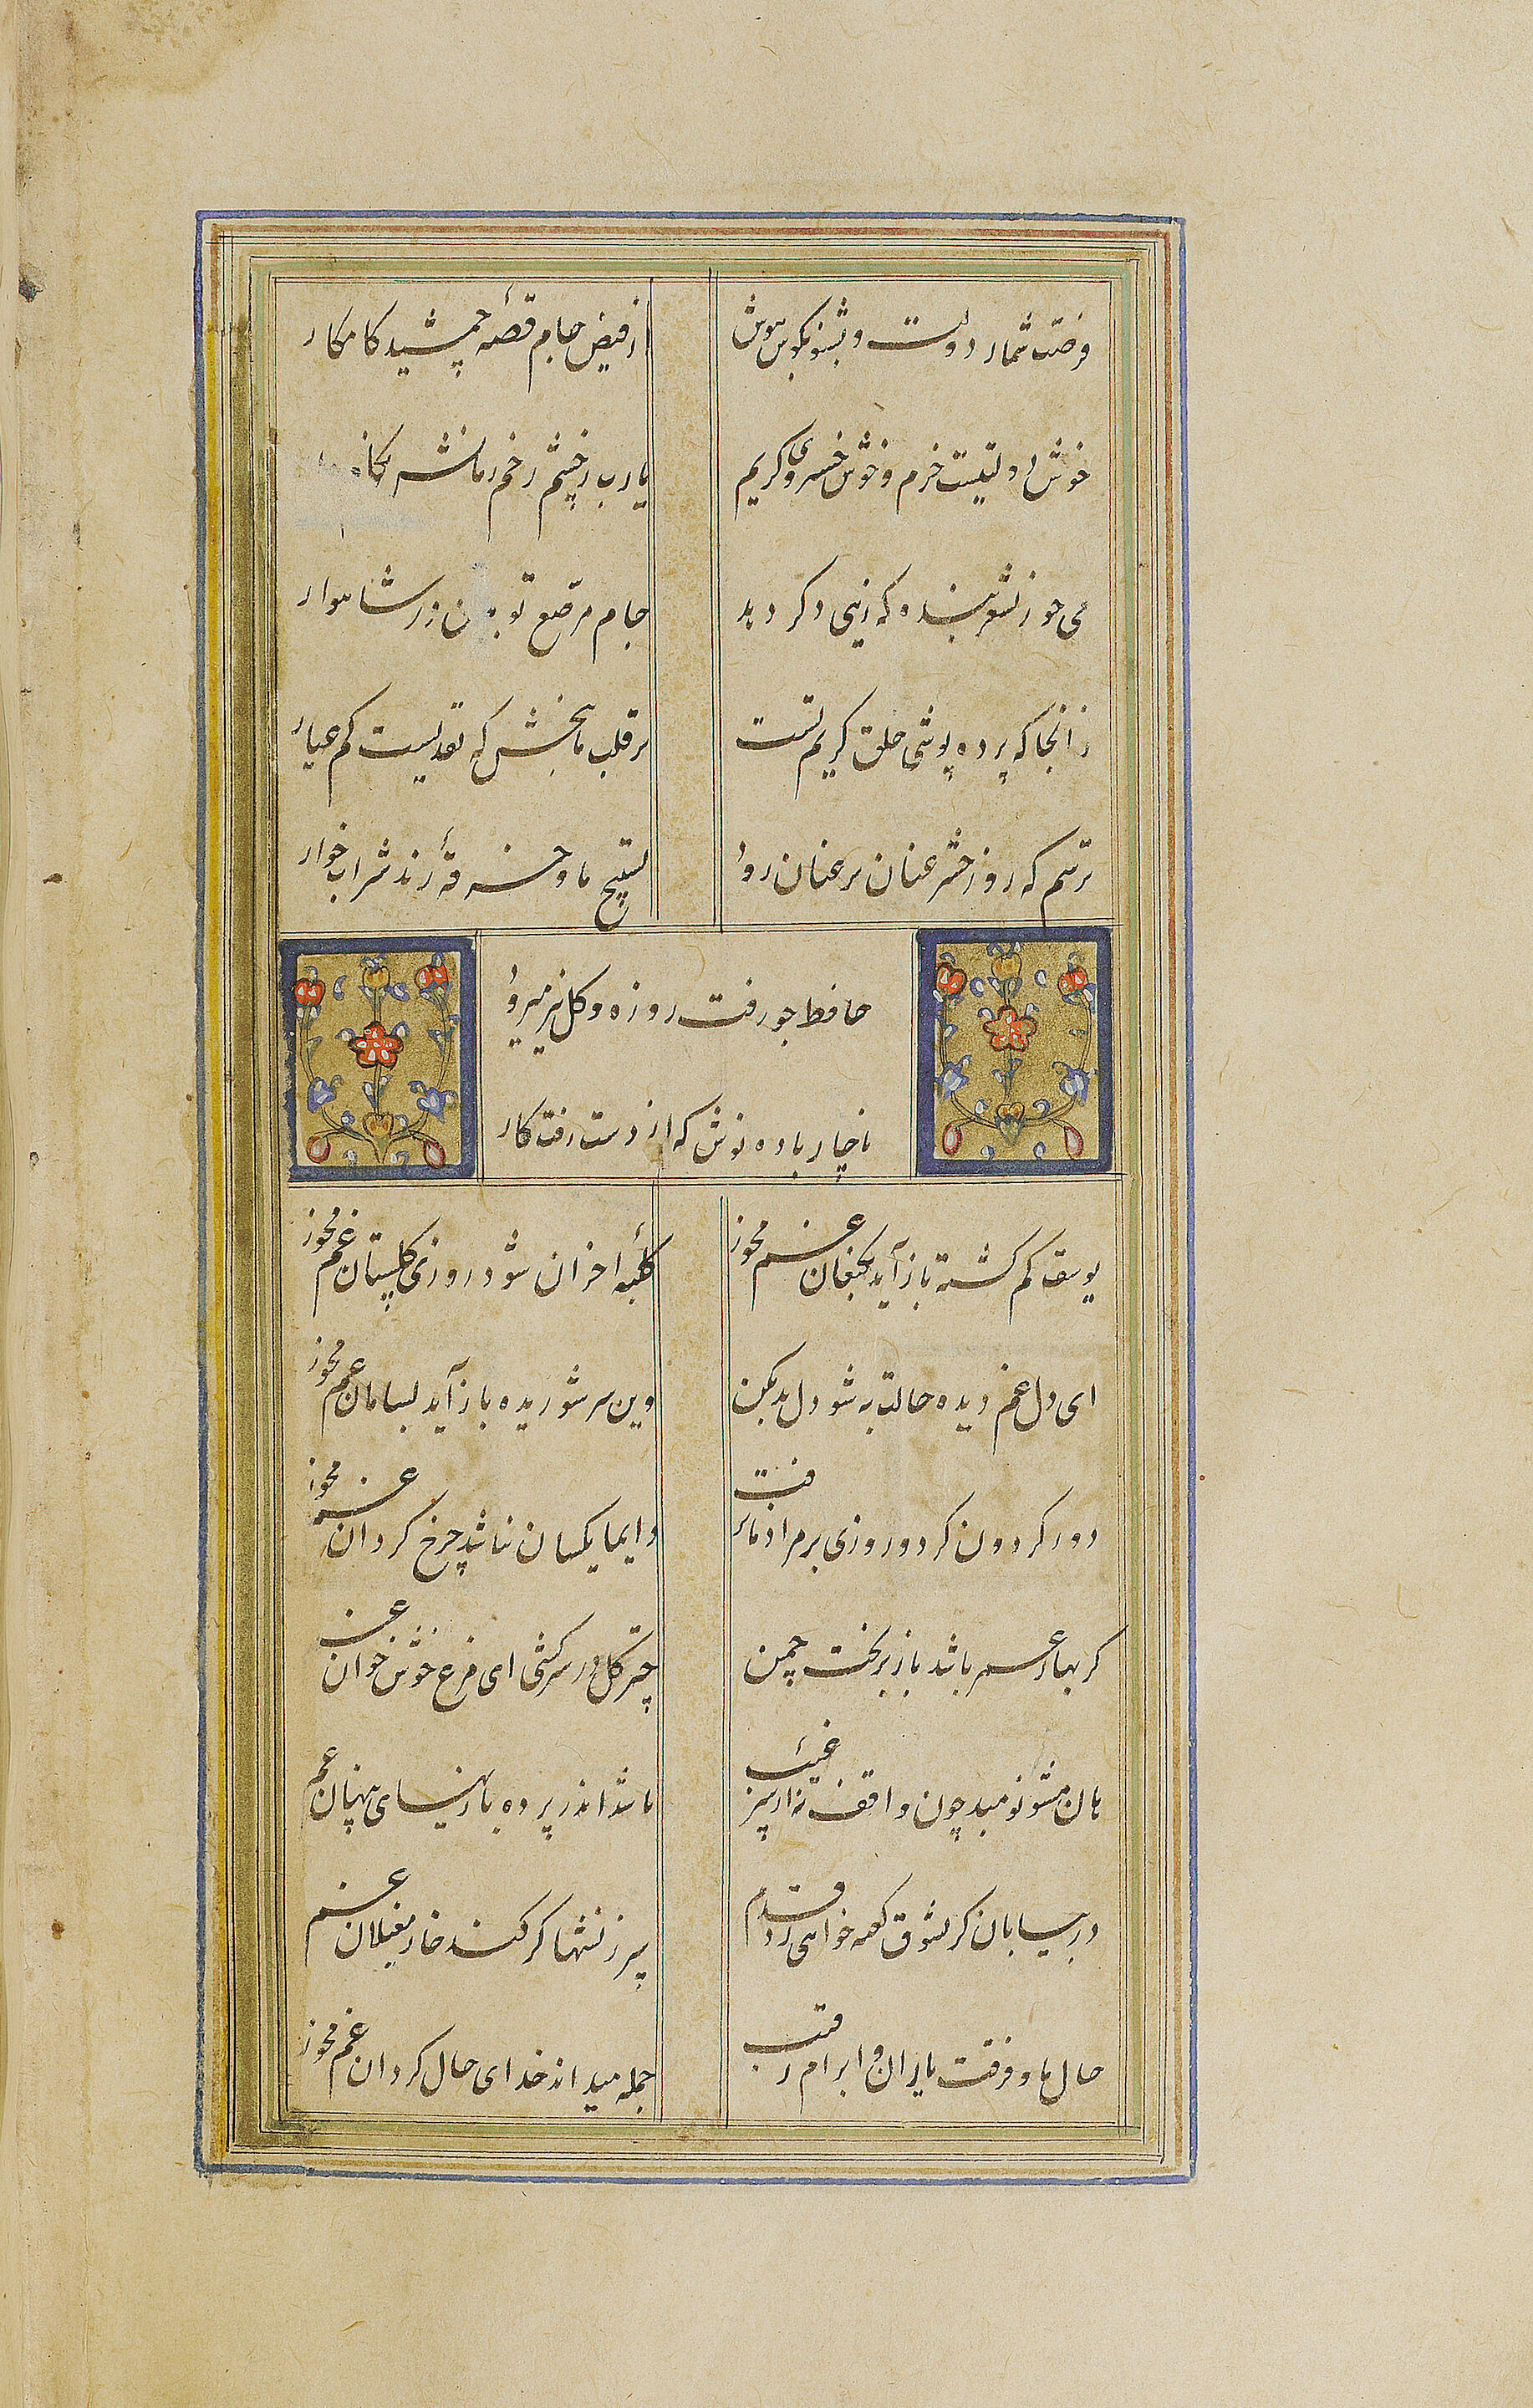 فرصت شمار دولت و بشنو بگوش هوش
از فیض جام قصهٔ جمشید کامکار
خوش دولتیست خرم و خوش خسروی کریم
یارب ز چشم زخم زمانش نگاه
می خور بشعر بنده که زیبی دگر دهد
جام مرصع تو بدین در شاهوار
زانجا که پرده پوشی خلق کریم تست
بر قلب ما بخش که نقدیست کم عیار
ترسم که روز حشر عنان بر عنان رود
تسبیح ما و خرقهٔ رند شراب خوار
حافظ چو رفت روزه و کل نیز میرود
ناچار باده نوش که از دست رفت کار
یوسف کم کشته باز آید بکنعان غم مخور
کلبهٔ احزان شود روزی کلستان غم مخور
ای دل غم دیده حالت به شود دل بد مکن
وین سر شوریده باز آید بسامان غم مخور
دور کردون کر دو روزی بر مراد ما نرفت
دایما یکسان نباشد چرخ کردان غم مخور
کر بهار عمر باشد باز بر تخت چمن
چتر کل در سر کشی ای مرغ خوش خوان غم
هان مشو نومید چون واقف نهٔ از سر غیب
باشد اندر پرده بازیهای پنهان غم
در بیابان کر بشوق کعبه خواهی زد قدم
سرزنشها کر کند خار مغیلان غم
حال ما و فرقت یاران و ابرام رقیب
جمله میداند خدای حال کردان غم مخور